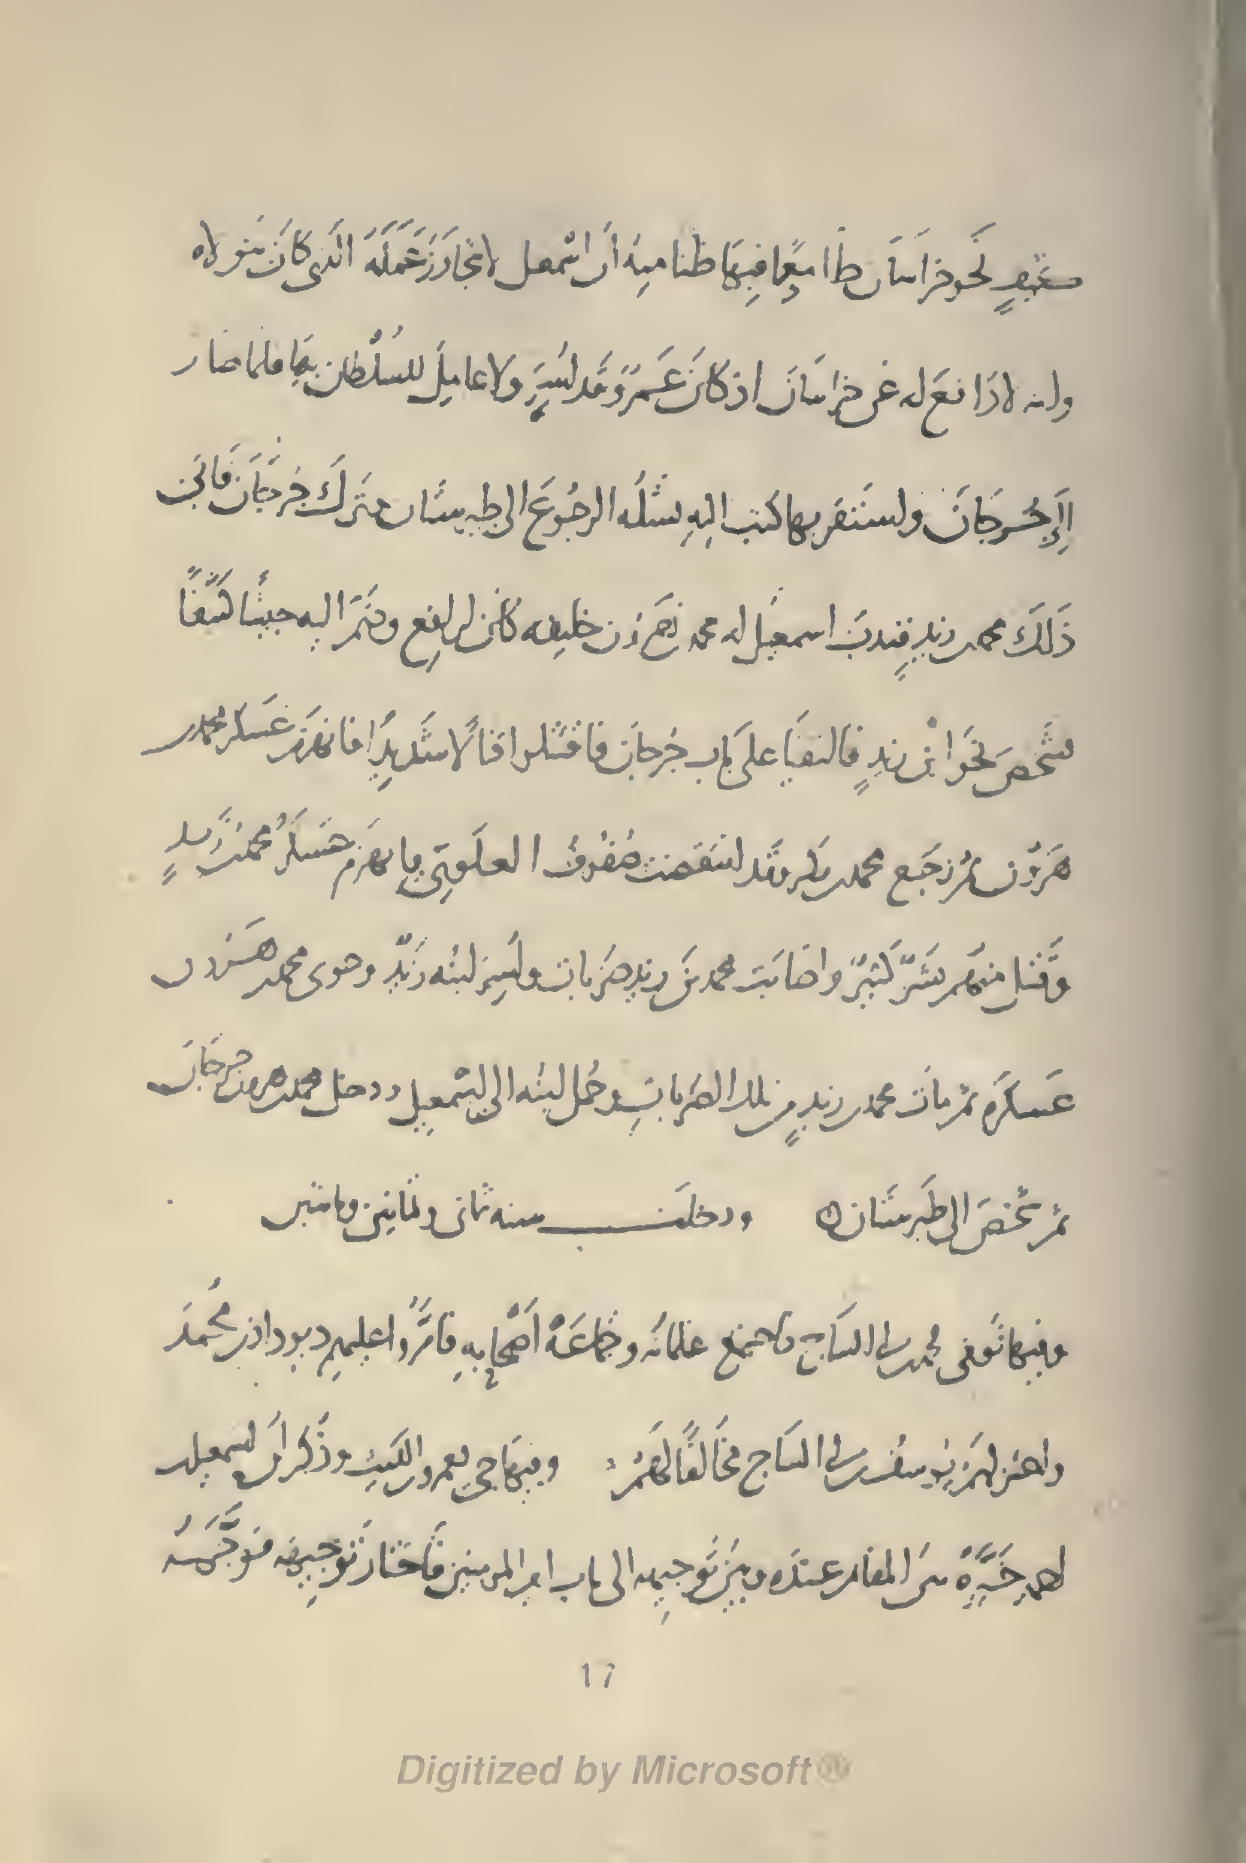 نحو خراسان طامعا فيها ظنا منه ان اسمعيل لا يتجاوز عمله الذى كان يتولاه
وانه لا دافع له عن خراسان اذ كان عمرو قد اسر ولا عامل للسلطان بها فلما صار
الى جرجان واستقر بها كتب اليه يسئله الرجوع الى طبرستان وترك جرجان فابى
ذلك محمد بن زيد فندب اسمعيل له محمد بن هرون خليفه كان لرافع وضم اليه جيشا كثيفا
شخص نحو ابن زيد فالتقيا على باب جرجان فاقتتلوا قتالا شديدا فانهزم عسكر محمد بن
هرون ثم رجع محمد بن وقد انتقضت صفوف العلوى فانهزم عسكر محمد بن زيد
وقتل منهم بشر كثير واصابت محمد بن زيد ضربات واسر ابنه زيد وحوى محمد هرون
عسكره ثم مات محمد بن زيد من تلك الضربات وحمل ابنه الى اسمعيل ودخل محمد بن هرون جرجان
ثم شخص الى طبرستان ودخلت سنه ثمان وثمانين ومائتين
وفيها توفى محمد بن ابى الساج فاجتمع غلمانه وجماعة اصحابه فامروا عليهم ديوداذ بن محمد
واعتزلهم يوسف بن ابى الساج مخالفا لهم وفيها جى بعمرو بن الليث وذكر ان اسمعيل
احمد خيره بين المقام عنده وبين توجيهه الى باب امير المومنين فاختار توجيهه فوجهه
17
Digitized by Microsoft®